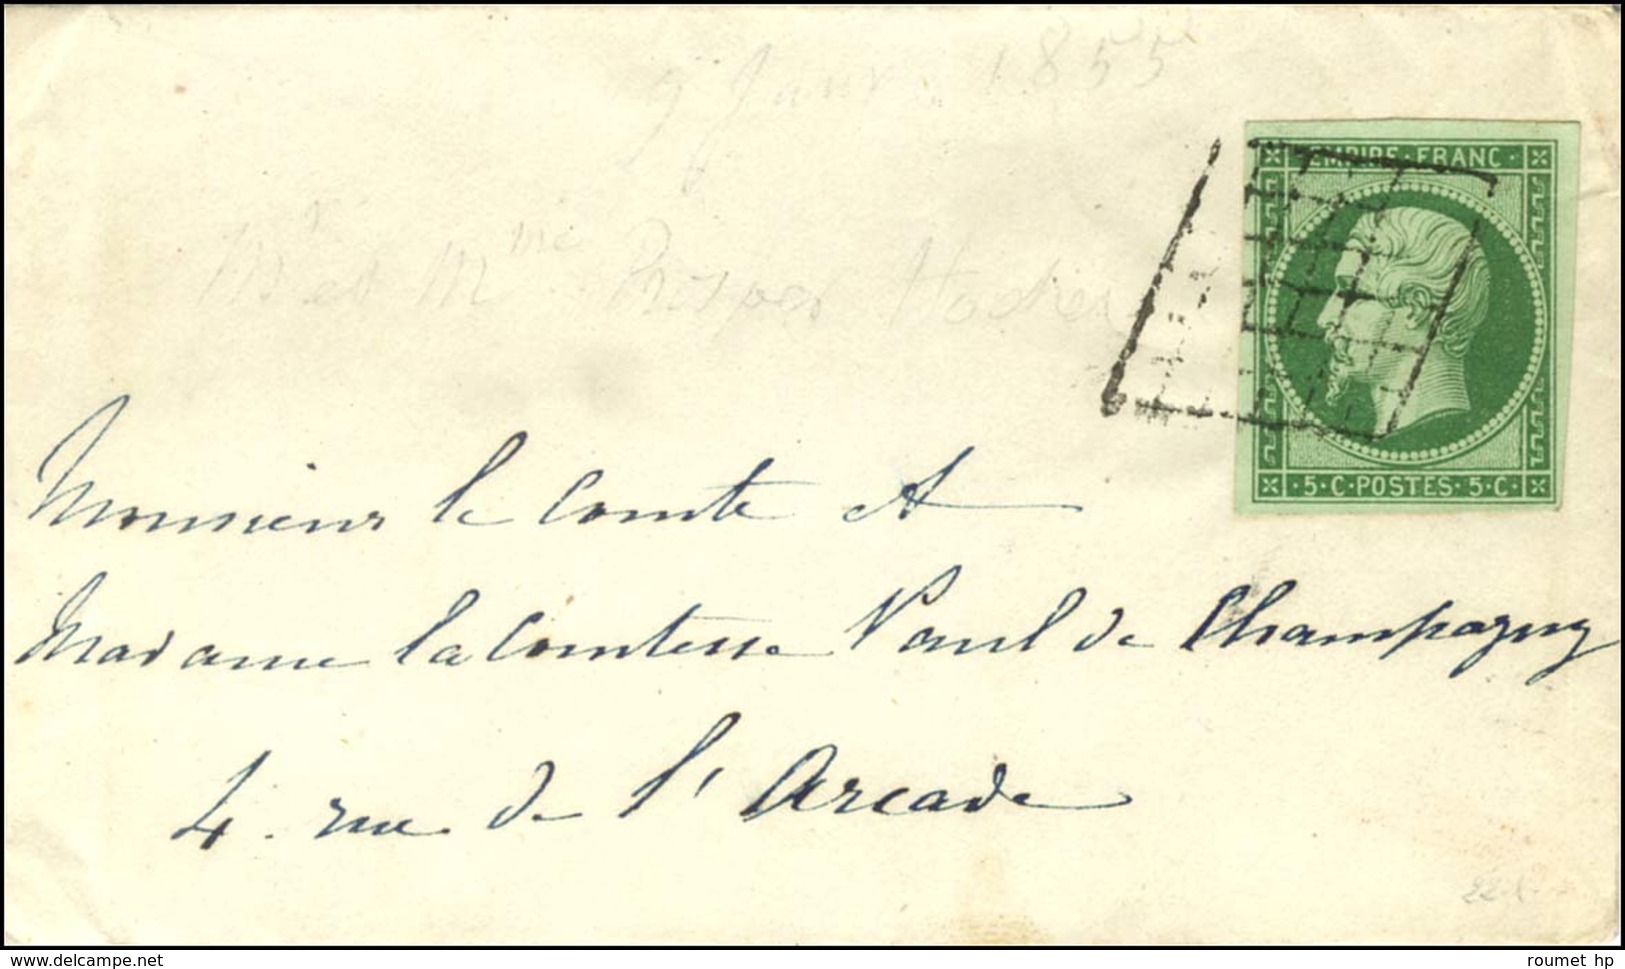 9 Janv. 1855
EMPIRE · FRANC ·
Mr et Mme Prosper
· 5 · C · POSTES · 5 · C ·
Monsieur le Comte et
Madame la Comtesse Paul de Champagny
4. rue de l'Arcade
delcampe.net
roumet hp